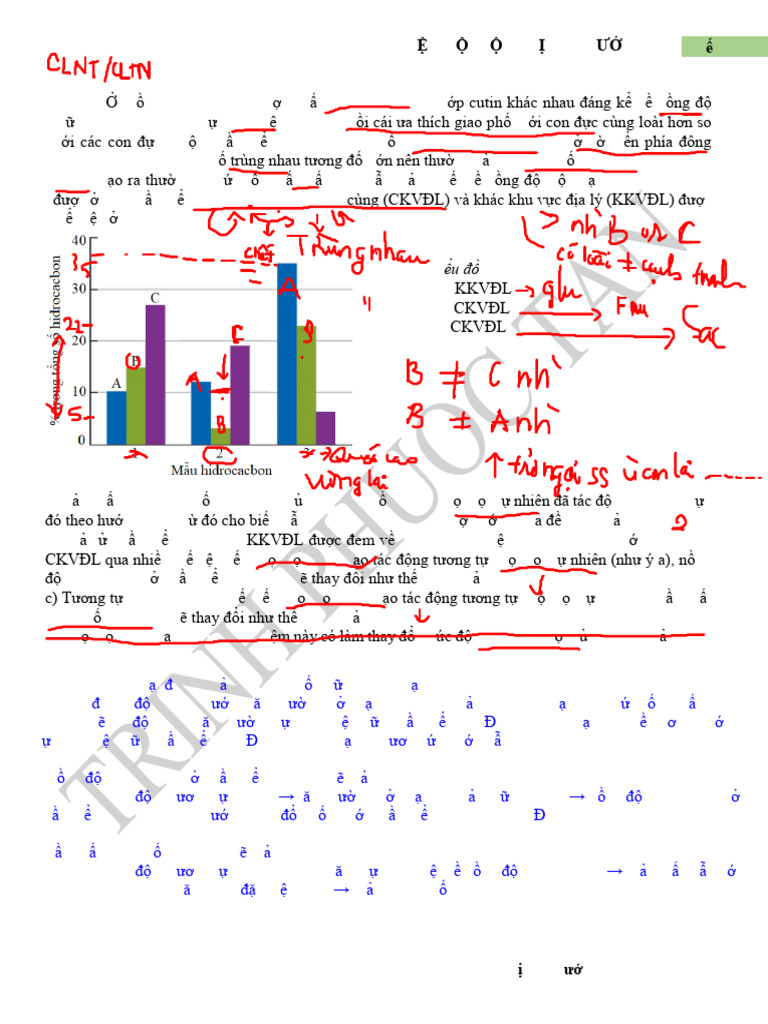 Ệ Ộ Ộ Ị ƯỚ ế
CLNT/CLTN
Ở ồ ợ ấ ớp cutin khác nhau đáng kể ề ồng độ
ữ ự ê ồi cái ưa thích giao phố ới con đực cùng loài hơn so
ới các con đự ộ ầ ể ố ờ ờ ển phía đông
ố trùng nhau tương đố ớn nên thườ ả ố
ạo ra thườ ứ ố ấ ấ ẫ ả ế ề ồng độ ộ ạ
đượ ở ầ ể cùng (CKVĐL) và khác khu vực địa lý (KKVĐL) đượ
ể ệ ở
nhì B or C
có loài ≠ cạnh tranh
Trùng nhau
% trong tổng số hidrocacbon
40
35
30
22
10
5
0
A
B
C
A
B
C
A
B
1
2
3
Mẫu hidrocacbon
ểu đồ
KKVĐL → glu
CKVĐL → Fru
CKVĐL → Sac
B ≠ C nhì
B ≠ A nhì
ả ấ ố ủ ồ ọ ọ ự nhiên đã tác độ ự
đó theo hướ ừ đó cho biế ẫ ợ ớ a đề ả 2
ả ử ầ ể KKVĐL được đem về ệ ớ
CKVĐL qua nhiề ế ệ ế ọ ọ ao tác động tương tự ọ ọ ự nhiên (như ý a), nồ
độ ở ầ ể ẽ thay đôi như thế ả
c) Tương tự ế ế ọ ọ ạo tác động tương tự ọ ọ ự ầ ấ
ố ẽ thay đổi như thê ả
ọ ọ a ệm này có làm thay đổ ức độ ọ ủ ả
ạ đ ả ố ữ ạ
đ độ ướ ă ườ ở ạ ả ạ ứ ố ấ
ẽ độ ă ườ ự ệ ữ ầ ể Đ ạ ề ơ ớ
ự ệ ữ ầ ể Đ ạ ươ ứ ớ ẫ
ồ độ ở ầ ể ẽ ả
độ ươ ự → ă ườ ở ạ ả ữ → ồ độ ở
ầ ể ướ đồ ố ớ ầ ể Đ
ầ ấ ố ẽ ả
độ ươ ự ă ự ệ ề ồ độ → ả ấ ẫ ớ
ă đặ ệ → ả ố
TRINH PHUOC TAN
ị ướ